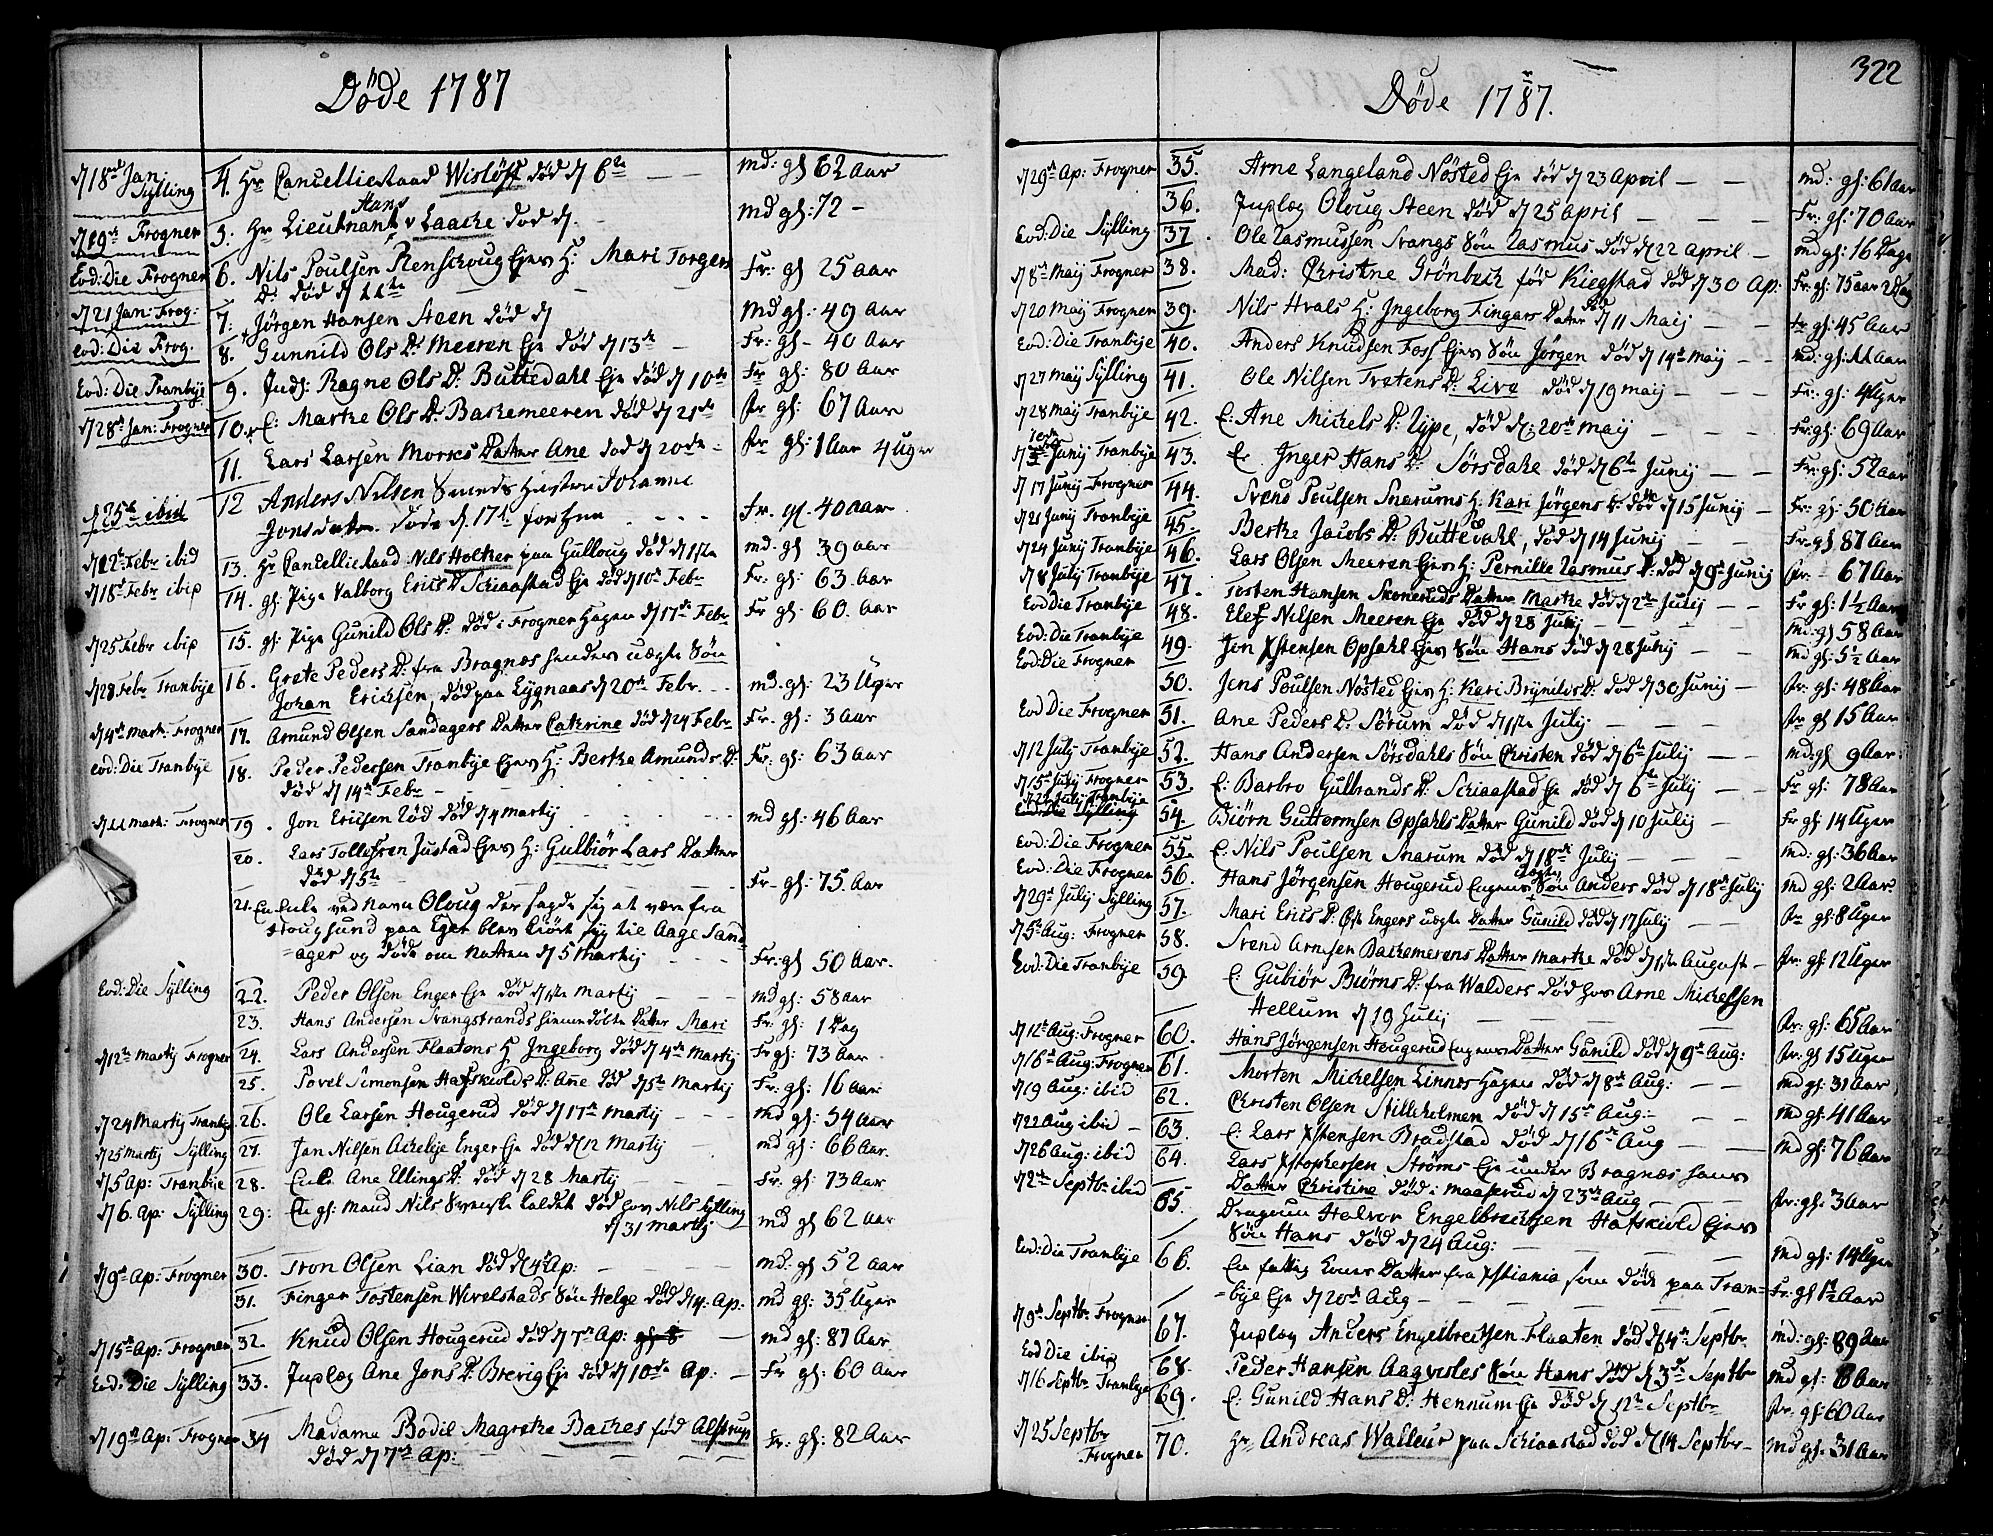 Døde 1787
d 18de Jan: Sylling 4. Hr Cancellieraad Wisløff død d 6te md: gl 62 Aar
d 19de Frogner 5. Hr Lieutnant Hans v Laacke død d. md gl: 72 -
Eod: Die Frogner 6. Nils Poulsen Renskoug Ejes H: Mari Torgers Fr: gl 25 Aar
D: død d 11te
d 21 Jan: Frog: 7. Jørgen Hansen Steen død d md gl: 49 Aar
eod: Die Frog. 8. Gunnild Ols D: Meeren Eje død d 13de Fr: gl - 40 Aar
Eod: Die Tranbije 9. Inds: Ragne Ols D: Buttedahl Eje død d 10de Fr gl: 80 Aar
d 28de Jan: Frogner 10. E: Marthe Ols D: Baskemeeren død d 21de Fr gl: 67 Aar
11. Lars Larsen Morkes Datter Ane død d 20de - Fr gl: 1 Aar 4 Uger
d 25de ibid 12 Anders Nilsen Smeds Hustru Johanne
Jonsdatter. døde d. 17de Fr. gl. 40 Aar
d 12te Febr ibid 13. Hr Cancellieraad Nils Holther paa Gulloug død d 1ste md. gl 39 Aar
d 18de Febr ibid 14. gl: Pige Valborg Erics D: Schiaastad Eje død d 10de Febr Fr: gl: 63 Aar
d 25 Febr ibid 15. gl: Pige Gunild Ols D: død i Frogner Hagen d 17de Febr Fr gl: 60. Aar
d 28 Febr Tranbije 16. Grete Peders D: fra Bragnæs hendes uægte Søn
Johan Erichsen, død paa Lygnaas d 20de Febr. md. gl: 23 Uger
d 4de Mart: Frogner 17. Amund Olsen Sandagers Datter Cathrine død d 24 Febr Fr. gl: 3 Aar
eod: Die Tranbije 18. Peder Pedersen Tranbije Ejes H: Berthe Amunds D: Fr: gl: 63 Aar
død d 14de Febr
d 11 Mart: Frogner 19. Jon Ericsen Rød død d 4 Martij md gl: 46 Aar
20. Lars Tollefsen Justad Ejes H: Gulbiør Lars Datter
død d 5te Fr gl: 75 Aar
21. En Enke ved Navn Oloug der sagde sig at være fra
Hougsund paa Eger blev kiørt syg til Aage Sand-
=ager og døde om Natten d 5 Martij Fr: gl 50 Aar.
Eod: Die Sylling 22. Peder Olsen Enger Eje død d 1ste Martij md gl: 58 Aar
23. Hans Andersen Svangstrands hiemmedøbte Datter Mari Fr: gl: 1 Dag
d 12te Martij Frogner 24. Lars Andersen Flaatens H Ingeborg død d 4de Martij Fr gl: 73 Aar
25. Povel Simonsen Hafskiolds D: Ane død d 5te Martij Fr: gl: 16 Aar
d 24 Martij Tranbije 26. Ole Larsen Hougerud død d 17de Martij md gl: 54 Aar
d 25 Martij Sylling 27. Jan Nilsen Ackebije Enger Eje død d 12 Martij md gl: 66 Aar.
d 5 Ap: Tranbije 28. Enke Ane Ellings D: død d 28 Martij Fr. gl: 73 Aar
d 6. Ap: Sylling 29: En gl: Mand Nils Svenske kaldet død hos Nils Sylling
d 31 Martij. md gl 62 Aar
d 9de Ap: Frogner 30. Tron Olsen Lian død d 4de Ap: md: gl 52 Aar
31. Finger Tostensen Wivelstads Søn Helge død d 4. Ap. md gl: 35 Uger
d 15de Ap: Frogner 32. Knud Olsen Hougerud død d 7de Ap: md: gl: 87 Aar
Eod: Die Sylling 33. Inds: Ane Jons D: Brevig Eje død d 10de Ap: Fr gl: 60 Aar
d 19de Ap: Frogner 34 Madame Bodil Magrethe Backes fød Alstrup Fr: gl: 82 Aar
død d 7de Ap:
322
Døde 1787.
d 29de Ap: Frogner 35. Arne Langeland Nøsted Eje død d 23 April md: gl: 61 Aar
36. Inds: Oloug Steen død d 25 April Fr: gl: 70 Aar
Eod: Die Sylling 37. Ole Rasmussen Svangs Søn Rasmus død d 22 April md gl: 16 Dage
d 8de Maij Frogner 38. Mad: Christine Grønbech fød Kiegstad død d 30 Ap: Fr: gl: 75 Aar 2 Dag
d 20 Maij Frogner 39. Nils Hvals H: Ingeborg Fingars Datter død d 11 Maij Fr gl: 45 Aar
Eod: Die Tranbije 40. Anders Knudsen Foss Ejes Søn Jørgen død d 14de Maij md: gl: 11 Aar
d 27 Maij Sylling 41. Ole Nilsen Tvetens D: Live død d 19 Maij Fr: gl: 4 Uger
d 28 Maij Tranbije 42. E: Ane Michels D: Rype, død d: 20de Maij Fr: gl: 69 Aar
10de d Junij Tranbije 43. E: Inger Hans D: Sørsdahl død d 6te Junij Fr: gl: 52 Aar
d 17 Junij Frogner 44. Svend Poulsen Snarums H: Kari Jørgens D: død d 15 Junij Fr: gl: 50 Aar
d 21 Junij Tranbije 45. Berthe Jacobs D: Buttedahl, død d 14 Junij Fr: gl 87 Aar
d 24 Junij Tranbije 46. Lars Olsen Meeren Ejes H: Pernille Rasmus D: død d 9de Junij Fr - 67 Aar
d 8 Julij Tranbije 47. Tosten Hansen Skoneruds Datter Marthe død d 2de Julij Fr gl: 1½ Aar
Eod Die Tranbije 48. Elef Nilsen Meeren Eje død d 28 Junij md: gl 58 Aar
Eod: Die Tranbije 49. Jon Xstensen Opsahl Ejes Søn Hans død d 28 Junij md gl: 5½ Aar
Eod: Die Frogner
50. Jens Poulsen Nøsted Ejes H: Kari Brynilds D: død d 30 Junij Fr. gl: 48 Aar
Eod Die Frogner 51. Ane Peders D: Sørum død d 1ste Julij Fr gl 15 Aar
d 12 Julij Tranbije 52. Hans Andersen Sørsdahls Søn Christen død d 6te Julij md: gl 9 Aar
d 15de Julij Frogner 53. E: Barbro Gulbrands D: Schiaastad Eje død d 6te Julij Fr gl: 78 Aar
d 22 Julij Tranbije
Eod: Die Sylling 54. Biørn Guttormsen Opsahls Datter Gunild død d 10 Julij Fr gl 14 Uger
Eod: Die Frogner 55. E: Nils Poulsen Snarum død d 18de Julij md: gl: 36 Aar
Eod: Die Frogner 56. Hans Jørgensen Hougerud Engens Søn Anders død d 18de Julij md gl: 2 Aar
d 29de Julij Sylling 57. Mari Erics D: Øst Engers uægte Datter Gunild død d 17 Julij Fr gl: 8 Uger
d 5te Aug: Frogner 58. Svend Arnesen Backemerens Datter Marthe død d 1ste August Fr: gl: 12 Uger
Eod: Die Tranbije 59. E: Gubiør Biørns D: fra Walders død hos Arne Michelsen
Hellum d 19 Julij Fr: gl: 65 Aar
d 12te Aug: Frogner 60. Hans Jørgensen Hougerud Engens Datter Gunild død d 9de Aug: Fr: gl: 15 Uger
d 16de Aug: Frogner 61. Morten Michelsen Linnes Hagen død d 8de Aug: md gl: 31 Aar
d 19 Aug: ibid 62. Christen Olsen Nilleholmen død d 15de Aug: md gl: 41 Aar
d 22 Aug ibid 63. E: Lars Xstensen Bradstad død d 16de Aug md gl: 76 Aar
d 26 Aug: ibid 64. Lars Xstophersen Strøms Eje under Bragnæs hans
Datter Christine død i Maaserud d 23de Aug Fr: gl: 3 Aar
d 2den Septbr ibid 65. Dragoun Helvor Engelbrechtsen Hafskiold Ejes
Søn Hans død d 24 Aug: md gl: 14 Uger
Eod: Die Tranbije 66. En fattig Kones Datter fra Xstiania som døde paa Tran-
=bije Eje d 20de Aug Fr: gl 1½ Aar
d 9de Septbr Frogner 67. Inds: Anders Engelbrechtsen Flaaten død d 4de Septbr md: gl: 89 Aar
Eod Die ibid 68. Peder Hansen Aagvoldes Søn Hans død d 3de Septbr md gl: 8 Aar
d 16 Septbr Tranbije 69. E: Gunild Hans D: Hennum Eje død d 12te Septbr Fr: gl: 60 Aar
d 25 Septbr Frogner 70. Hr Andreas Walleur paa Schiaastad død d 14 Septbr md gl: 31 Aar